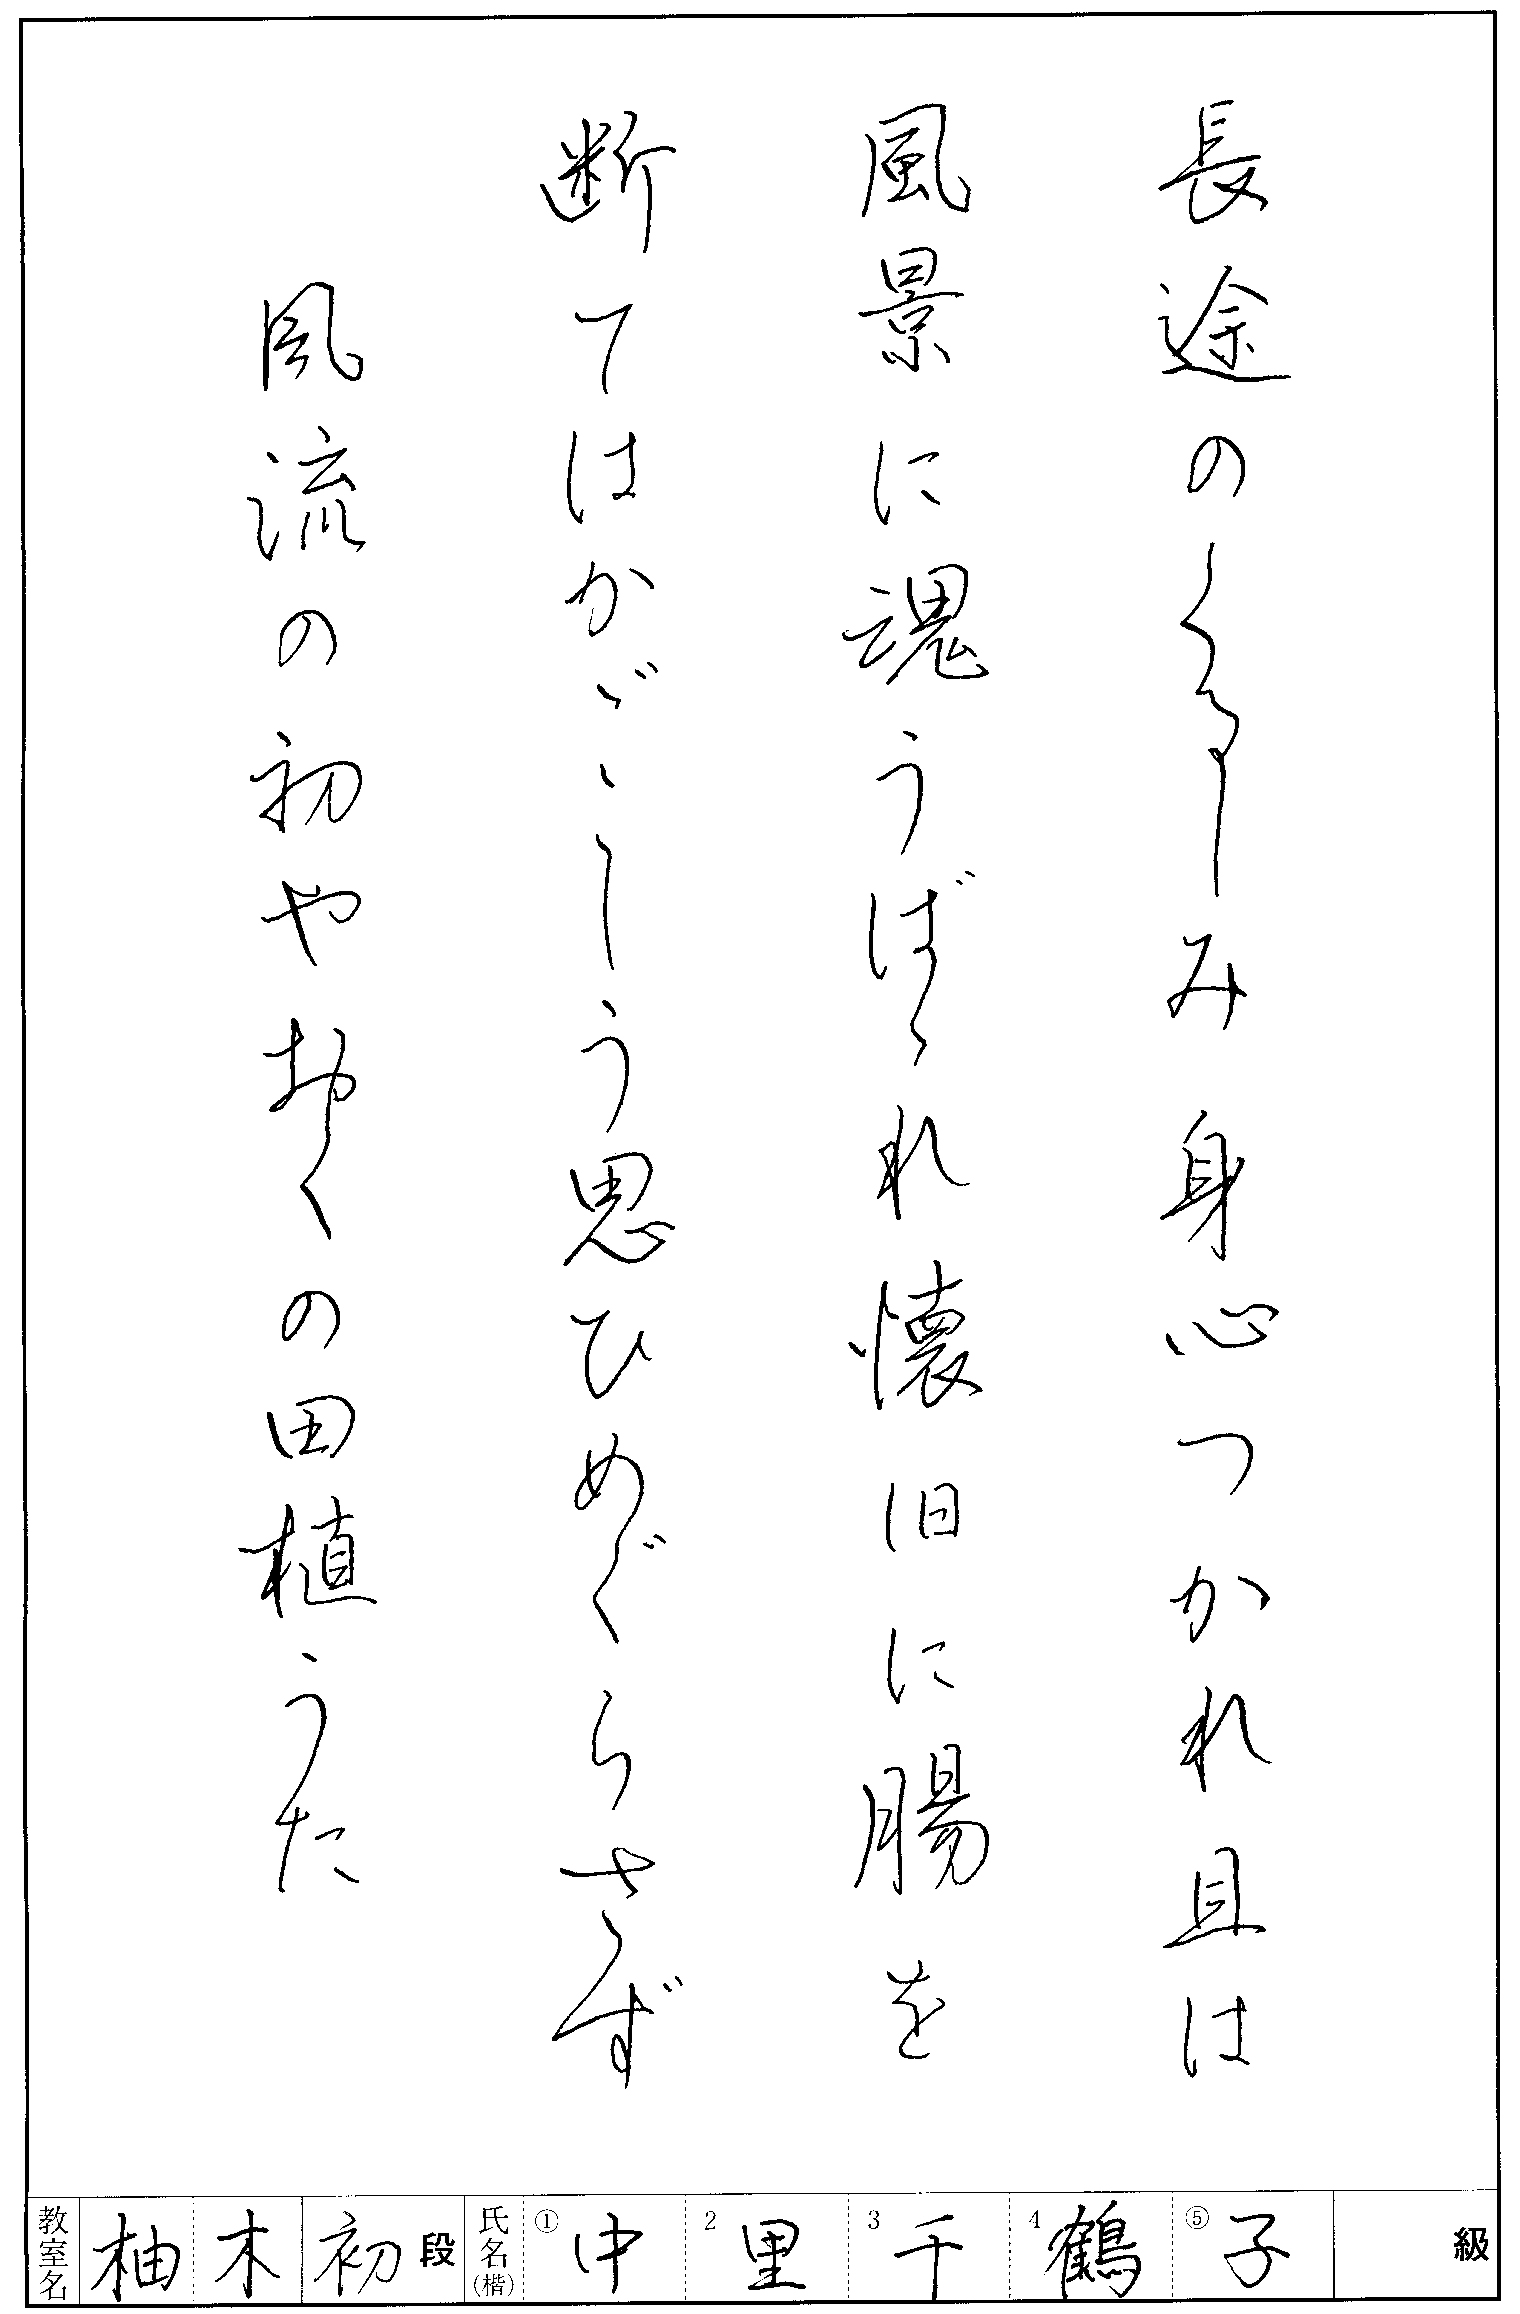 長途のくるしみ身心つかれ且は
風景に魂うばゝれ懐旧に腸を
断てはかゞゝしう思ひめぐらさず
風流の初やおくの田植うた
教室名 柚木 初段 氏名(楷) ①中 2里 3千 4鶴 ⑤子 級